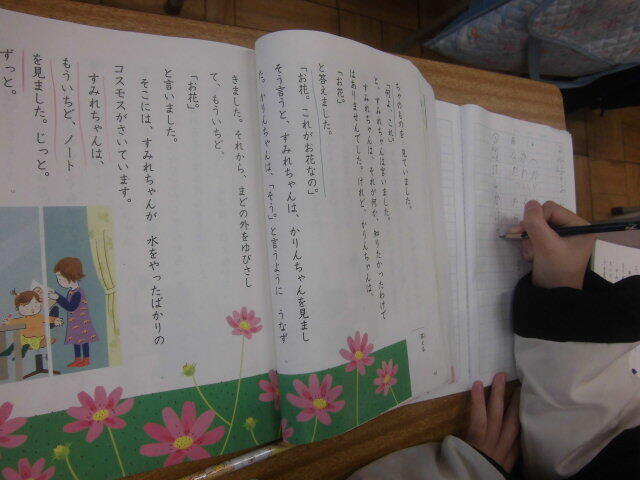 ちゃのものを　見ていました。
「何よ、これ」
と、すみれちゃんは言いました。
すみれちゃんは、それが何か、知りたかったわけで
はありませんでした。けれど、かりんちゃんは、
「お花」
と答えました。
「お花。これがお花なの」
そう言うと、すみれちゃんは、かりんちゃんを見まし
た。かりんちゃんは、「そう。」と言うように　うなず
きました。それから、まどの外をゆびさし
て、もういちど、
「お花」
と言いました。
そこには、すみれちゃんが　水をやったばかりの
コスモスがさいています。
すみれちゃんは、
もういちど、ノート
を見ました。じっと。
ずっと。
答える